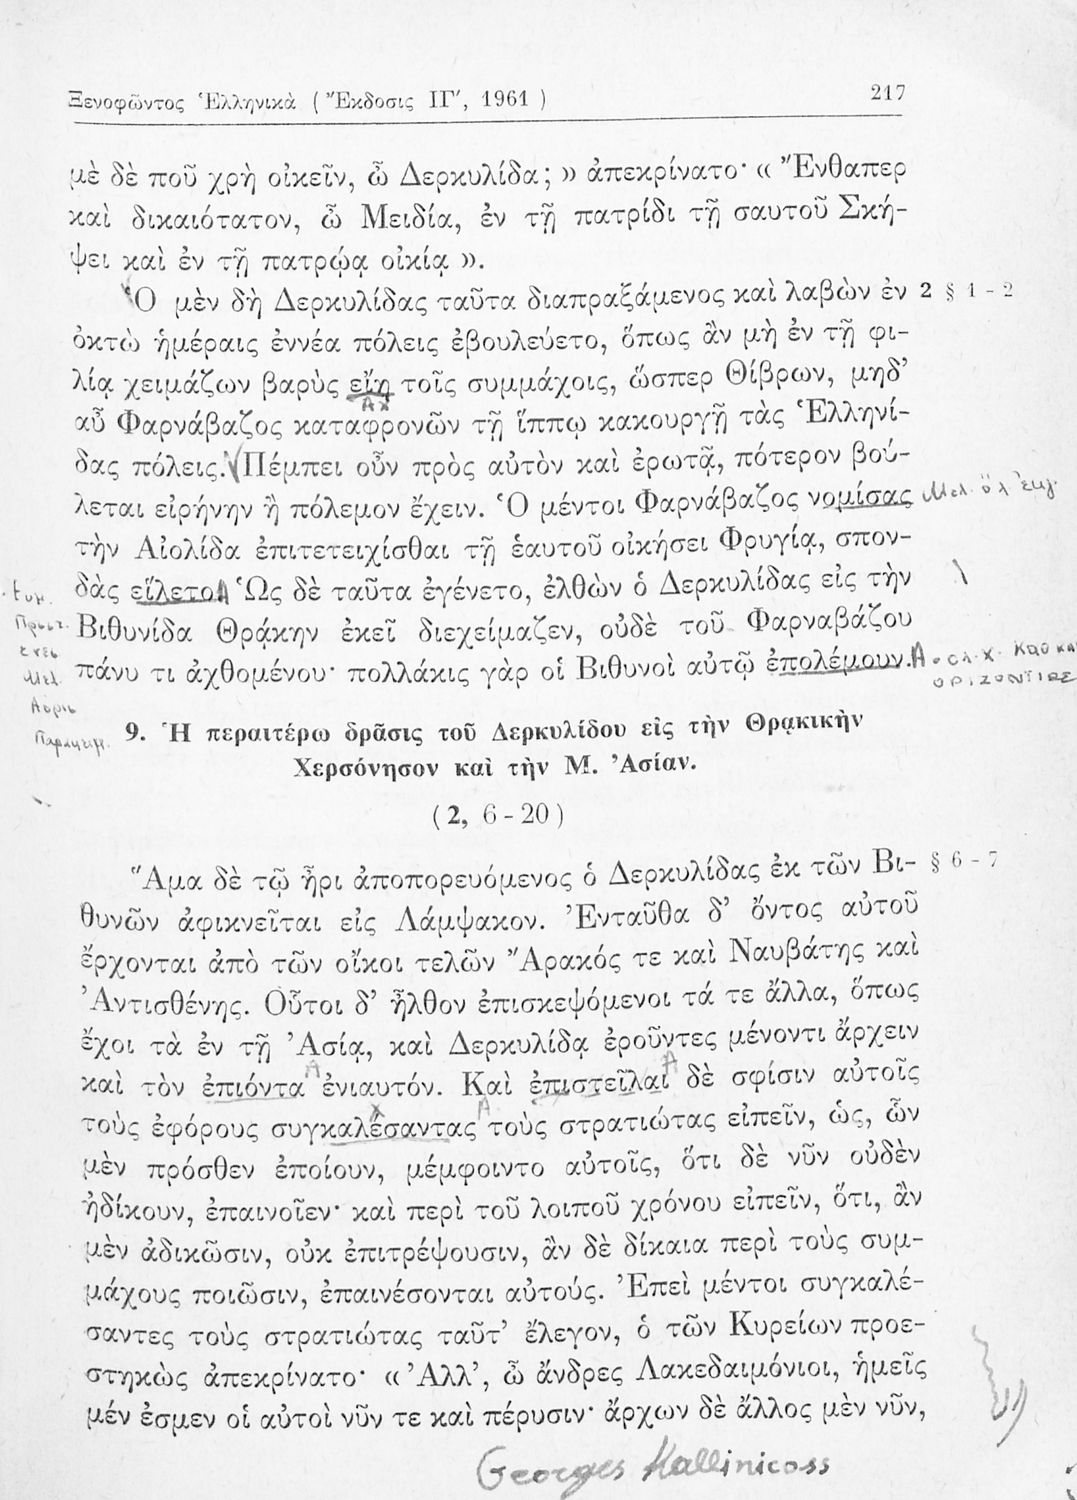 Ξενοφῶντος Ἑλληνικὰ (Ἔκδοσις ΙΓ′, 1961)
217
μὲ δὲ ποῦ χρὴ οἰκεῖν, ὦ Δερκυλίδα; » ἀπεκρίνατο· « Ἔνθαπερ
καὶ δικαιότατον, ὦ Μειδία, ἐν τῇ πατρίδι τῇ σαυτοῦ Σκή-
ψει καὶ ἐν τῇ πατρῴᾳ οἰκίᾳ ».
Ὁ μὲν δὴ Δερκυλίδας ταῦτα διαπραξάμενος καὶ λαβὼν ἐν 2 § 1 - 2
ὀκτὼ ἡμέραις ἐννέα πόλεις ἐβουλεύετο, ὅπως ἂν μὴ ἐν τῇ φι-
λίᾳ χειμάζων βαρὺς εἴη τοῖς συμμάχοις, ὥσπερ Θίβρων, μηδ’
αὖ Φαρνάβαζος καταφρονῶν τῇ ἵππῳ κακουργῇ τὰς Ἑλληνί-
δας πόλεις. Πέμπει οὖν πρὸς αὐτὸν καὶ ἐρωτᾷ, πότερον βού-
λεται εἰρήνην ἢ πόλεμον ἔχειν. Ὁ μέντοι Φαρνάβαζος νομίσας
τὴν Αἰολίδα ἐπιτετειχίσθαι τῇ ἑαυτοῦ οἰκήσει Φρυγίᾳ, σπον-
δὰς εἵλετο. Ὡς δὲ ταῦτα ἐγένετο, ἐλθὼν ὁ Δερκυλίδας εἰς τὴν
Βιθυνίδα Θρᾴκην ἐκεῖ διεχείμαζεν, οὐδὲ τοῦ Φαρναβάζου
πάνυ τι ἀχθομένου· πολλάκις γὰρ οἱ Βιθυνοὶ αὐτῷ ἐπολέμουν.
ΟΡΙΖΟΝΤΙΩΣ
9. Ἡ περαιτέρω δρᾶσις τοῦ Δερκυλίδου εἰς τὴν Θρᾳκικὴν
Χερσόνησον καὶ τὴν Μ. Ἀσίαν.
(2, 6 - 20)
Ἅμα δὲ τῷ ἦρι ἀποπορευόμενος ὁ Δερκυλίδας ἐκ τῶν Βι- § 6 - 7
θυνῶν ἀφικνεῖται εἰς Λάμψακον. Ἐνταῦθα δ’ ὄντος αὐτοῦ
ἔρχονται ἀπὸ τῶν οἴκοι τελῶν Ἄρακός τε καὶ Ναυβάτης καὶ
Ἀντισθένης. Οὗτοι δ’ ἦλθον ἐπισκεψόμενοι τά τε ἄλλα, ὅπως
ἔχοι τὰ ἐν τῇ Ἀσίᾳ, καὶ Δερκυλίδᾳ ἐροῦντες μένοντι ἄρχειν
καὶ τὸν ἐπιόντα ἐνιαυτόν. Καὶ ἐπιστεῖλαι δὲ σφίσιν αὐτοῖς
τοὺς ἐφόρους συγκαλέσαντας τοὺς στρατιώτας εἰπεῖν, ὡς, ὧν
μὲν πρόσθεν ἐποίουν, μέμφοιντο αὐτοῖς, ὅτι δὲ νῦν οὐδὲν
ἠδίκουν, ἐπαινοῖεν· καὶ περὶ τοῦ λοιποῦ χρόνου εἰπεῖν, ὅτι, ἂν
μὲν ἀδικῶσιν, οὐκ ἐπιτρέψουσιν, ἂν δὲ δίκαια περὶ τοὺς συμ-
μάχους ποιῶσιν, ἐπαινέσονται αὐτούς. Ἐπεὶ μέντοι συγκαλέ-
σαντες τοὺς στρατιώτας ταῦτ’ ἔλεγον, ὁ τῶν Κυρείων προε-
στηκὼς ἀπεκρίνατο· « Ἀλλ’, ὦ ἄνδρες Λακεδαιμόνιοι, ἡμεῖς
μέν ἐσμεν οἱ αὐτοὶ νῦν τε καὶ πέρυσιν· ἄρχων δὲ ἄλλος μὲν νῦν,
Georges Kallinicoss